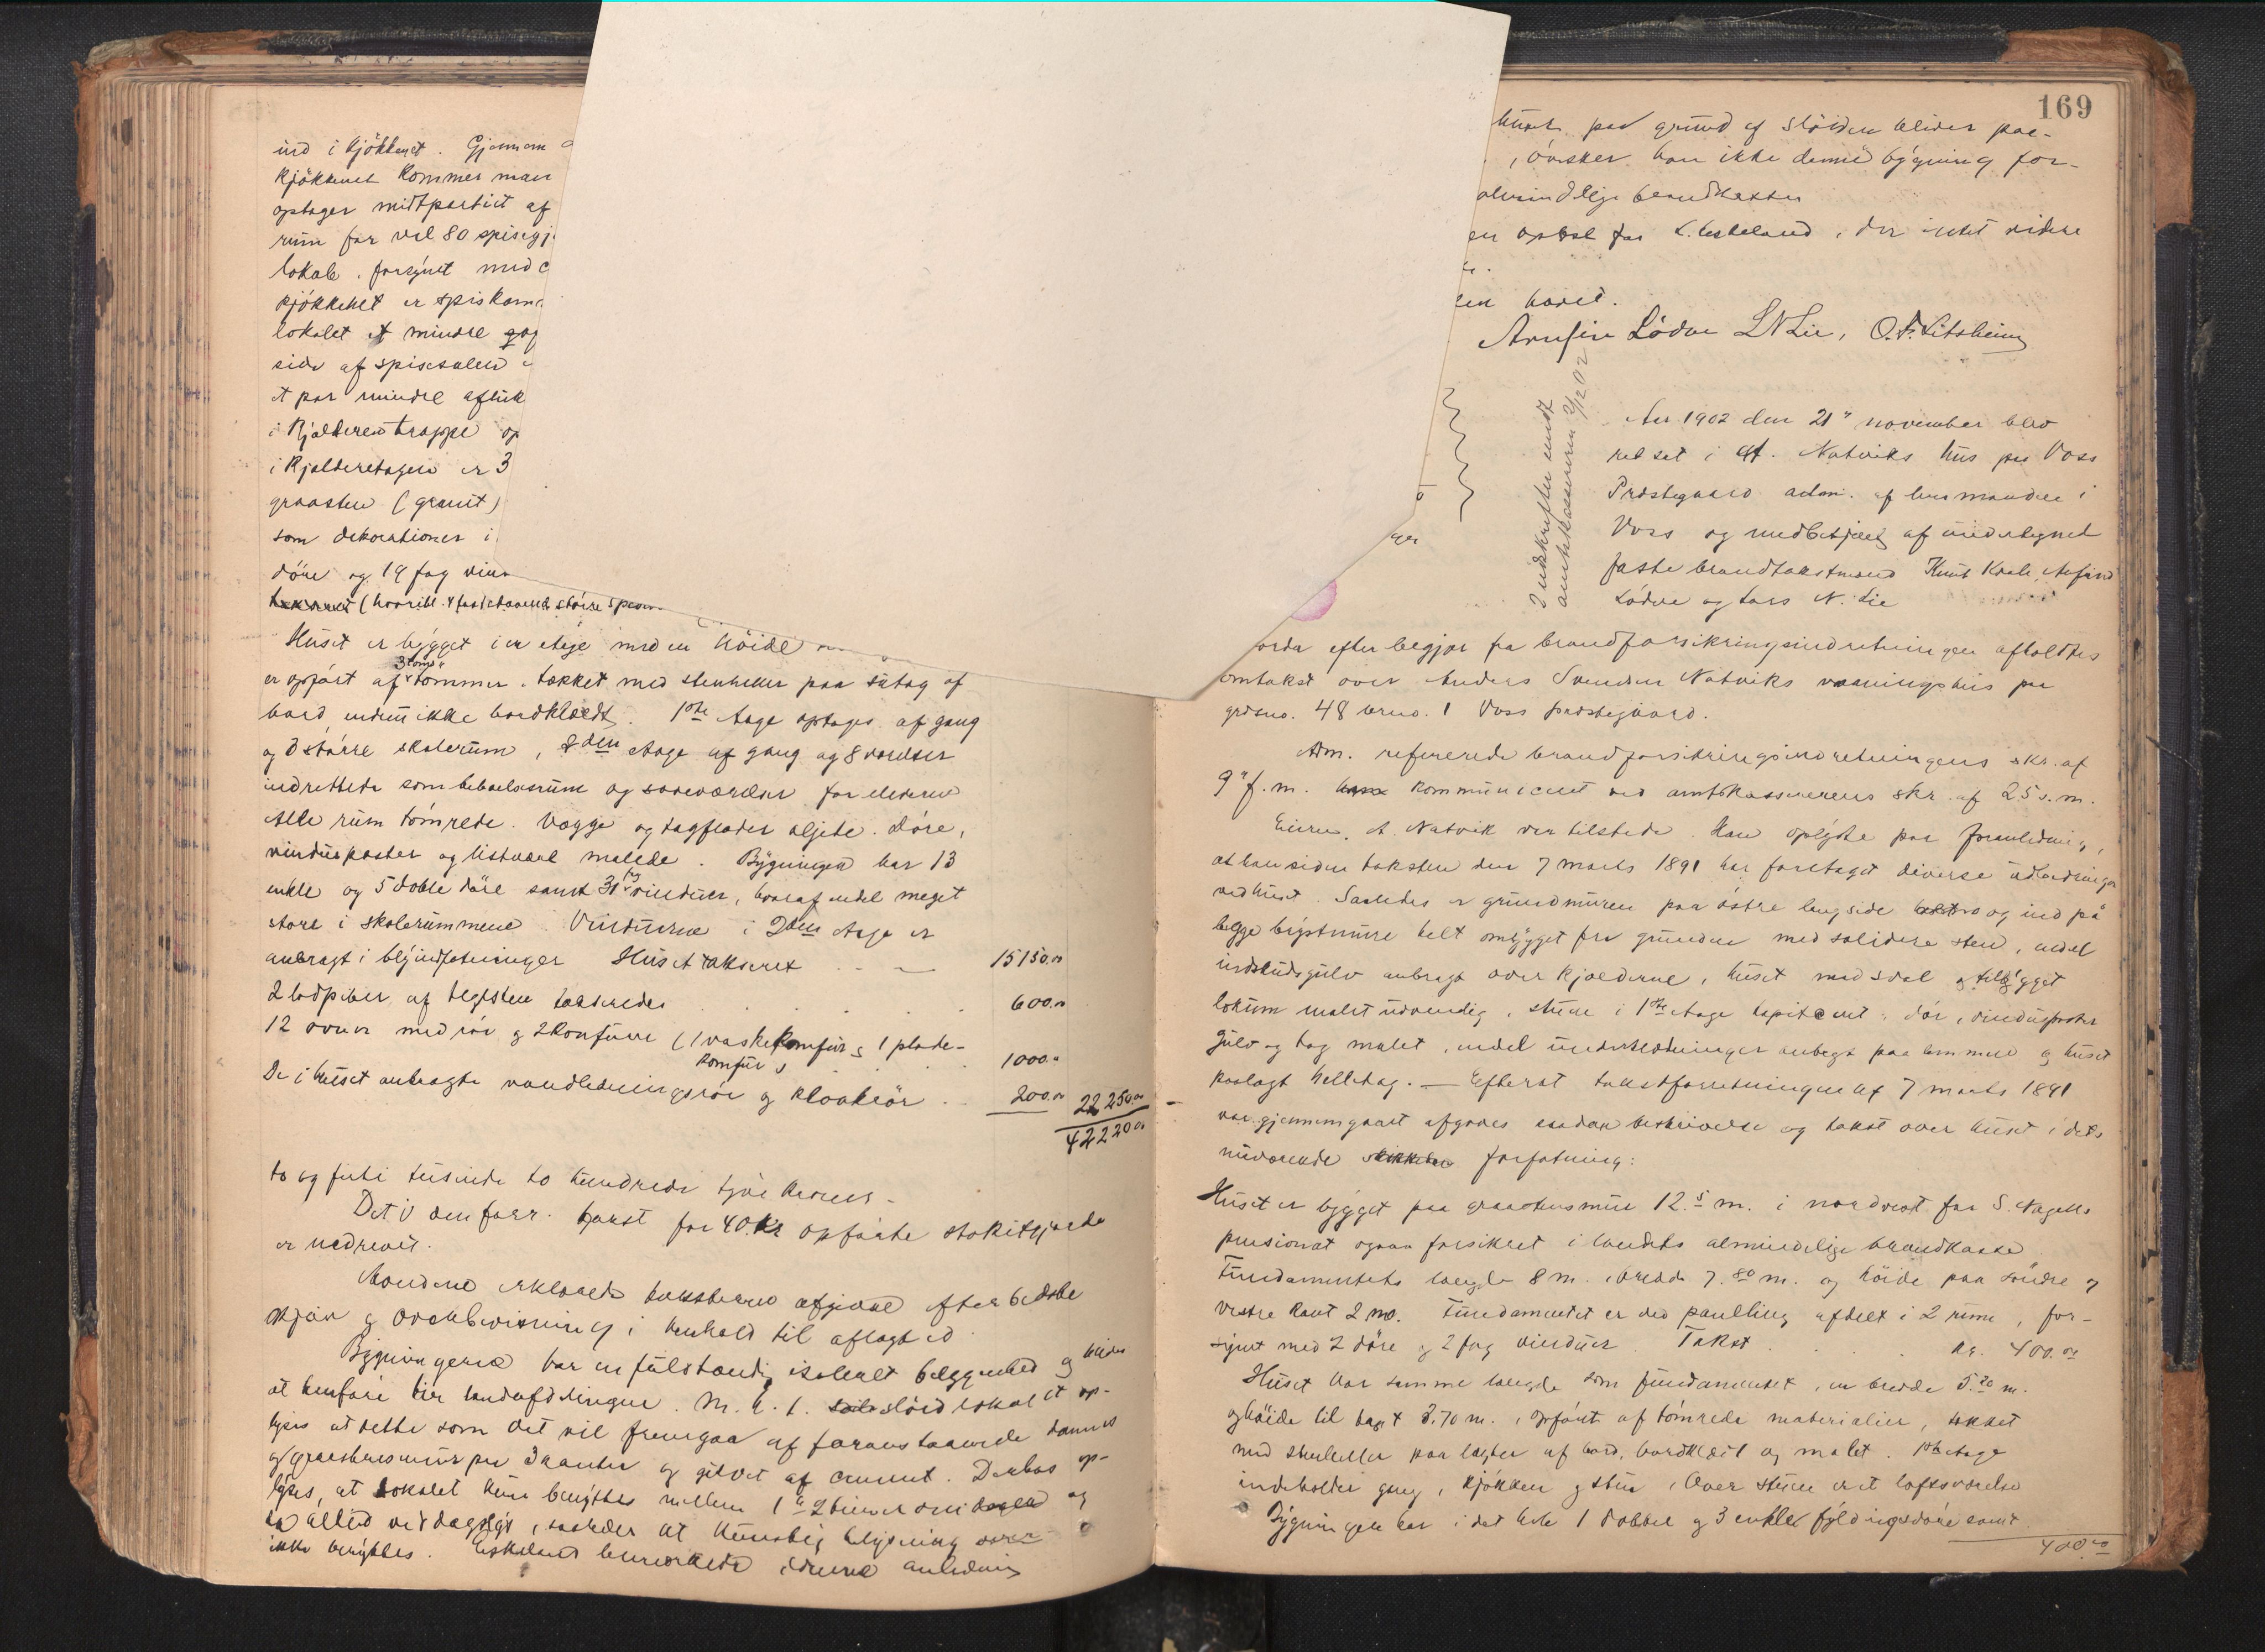 ind i kjökkenet. Gjennem
kjökkenet kommer man
optager midtpartiet af
rum for vel 80 spisegj
lokale, forsynt med
kjökkenet er spiskam
lokalet et mindre
side af spisesalen
et par mindre afluk
i kjelderen trappe op
i kjelderetagen er 3
graasten (granit)
som dekorationer i
döre og 19 fag vin
större
Huset er bygget i en etage med en höide
3 toms
er opfört af tömmer, tækket med stenheller paa sutag af
bord, endnu ikke bordklædt. 1ste etage optages af gang
og 3 större skolerum, 2den etage af gang og 8 værelser
indrettede som beboelsesrum og soveværelser for eleverne
Alle rum tömrede. Vægge og tagflader oljede. Döre,
vinduskarter og listværk malede. Bygningen har 13
enkle og 5 doble döre samt 31 fag vinduer, hvoraf endel meget
store i skolerummene. Vinduerne i 2den etage er
anbragt i blyindfatninger Huset takseret 15150.00
2 lodpiber af teglsten takseredes 600.00
12 ovner med rör og 2 komfurer (1 vaskekomfur & 1 plade-
komfur) 1000.00
De i huset anbragte vandledningsrör og kloakrör 200.00 22250.00
42220.00
to og firti tusinde to hundrede tyve kroner.
Det i den forr. takst for 40 kr opförte stakitgjærde
er nedrevet.
Mændene erklærede taksterne afgivne efter bedste
skjön og overbevisning i henhold til aflagt ed.
Bygningerne har en fuldstændig isoleret beliggenhed og bliver
at henföre til landafdelingen. M. h. t. slöidlokalet op-
lyses at dette som det vil fremgaa af foranstaaende dannes
af graastensmur paa 3 kanter og gulvet af cement. Derhos op-
lyses, at lokalet kun benyttes mellem 1 à 2 timer om dagen og
da altid ved dagslys, saaledes at kunstig belysning
ikke benyttes. Eskeland bemærkede i denne anledning
169
huset paa grund af slöiden bliver paa-
, önsker han ikke denne bygning for-
almindelige brandkasse
en oplæst for L. Eskeland, der intet videre
en hævet.
Arnfin Lödve LNLie, O. T. Litsheim
2 udskrifter sendt
amtskassereren 2/12 02
Aar 1902 den 21 november blev
ret sat i A. Natviks hus paa Voss
Prestegaard adm. af lensmanden i
Voss og medbetjent af undertegnet
faste brandtakstmænd Knut Kvale, Arnfin
Lödve og Lars N. Lie
orda efter begjær fra brandforsikringsindretningen afholdtes
omtakst over Anders Svendsen Natviks vaaningshus paa
grdsno. 48 brno. 1 Voss prestegaard.
Adm. refererede brandforsikringsindretningens skr. af
9 f. m. kommuniceret ved amtskassererens skr. af 25 s. m.
Eieren, A. Natvik var tilstede. Han oplyste paa foranledning,
at han siden taksten den 7 marts 1891 har foretaget diverse udbedringer
ved huset. Saaledes er grundmuren paa östre langside og ind på
begge bygstmure helt ombygget fra grunden med solidere sten, endel
indskudsgulv anbragt over kjælderne, huset med sval og tilbygget
lokum malet udvendig, stuen i 1ste etage tapitseret, dör, vinduspaster
gulv og tag malet, endel anbragt paa og huset
paalagt helletag. — Efterat takstforretningen af 7 marts 1891
var gjennemgaaet afgaves saadan beskrivelse og takst over huset i dets
nuværende forfatning:
Huset er bygget paa graastensmur 12.5 m. i nordvest for S. Nagells
pensionat ogsaa forsikret i landets almindelige brandkasse
Fundamentets længde 8 m. bredde 7.80 m. og höide paa söndre &
vestre kant 2 m. Fundamentet er ved panelling afdelt i 2 rum, for-
synt med 2 döre & 2 fag vinduer. Takst kr. 400.00
Huset har samme længde som fundamentet, en bredde 5.20 m.
og höide til taget 3.70 m., opfört af tömrede materialier, tækket
med stenheller paa lægter af bord, bordklædt og malet. 1ste etage
indeholder gang, kjökken & stue. Over stuen er et loftsværelse
Bygningen har i det hele 1 dobbel & 3 enkle fyldingsdöre samt
400.00